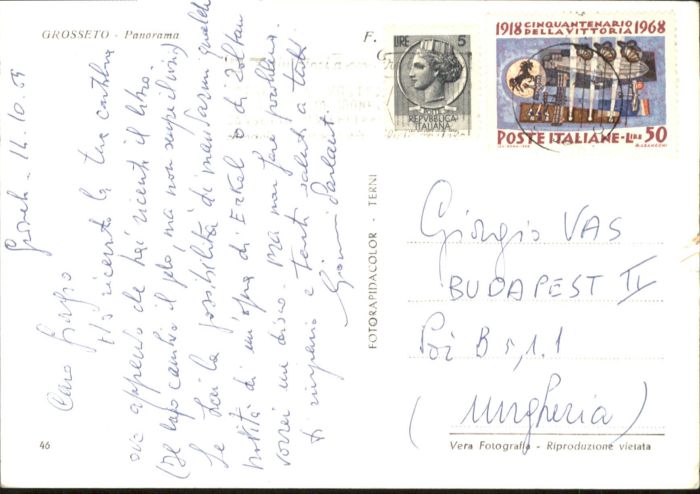 GROSSETO - Panorama
F.
LIRE 5
REPVBBLICA
ITALIANA
1918 CINQUANTENARIO 1968
DELLA VITTORIA
POSTE ITALIANE - LIRE 50
Grosseto - 14.10.
Caro Giorgio
Ho ricevuto la tua cartolina
ove apprendo che hai ricevuto il libro.
(Il lupo cambia il pelo, ma non superi i vizi)
Se hai la possibilità di mandarmi qualche
notizia di un'opera di Erkel o di Zoltan
vorrei un disco. Ma non fare problema.
ti ringrazio e tanti saluti a tutti
Gianni
FOTORAPIDACOLOR - TERNI
Giorgio VAS
BUDAPEST II
B 5, 1.1
(Ungheria)
46
Vera Fotografia - Riproduzione vietata